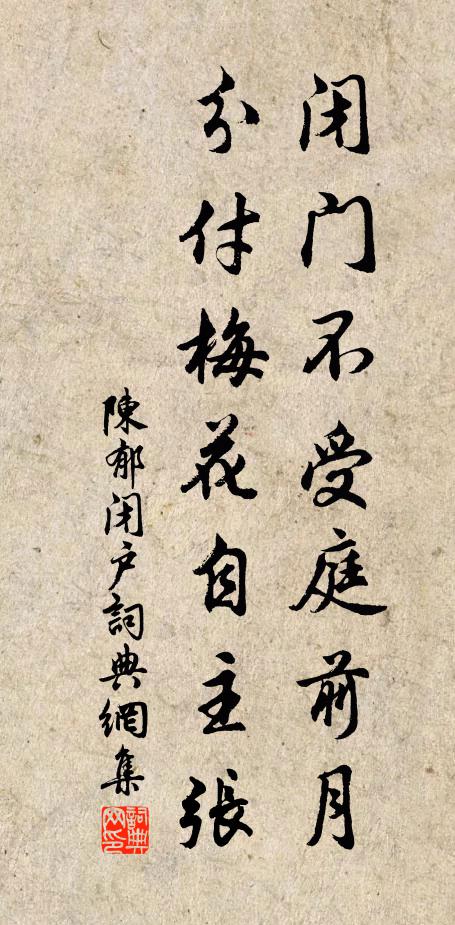 闭門不受庭前月
分付梅花自主張
陳郁闭戶詞典網集
詞典网印